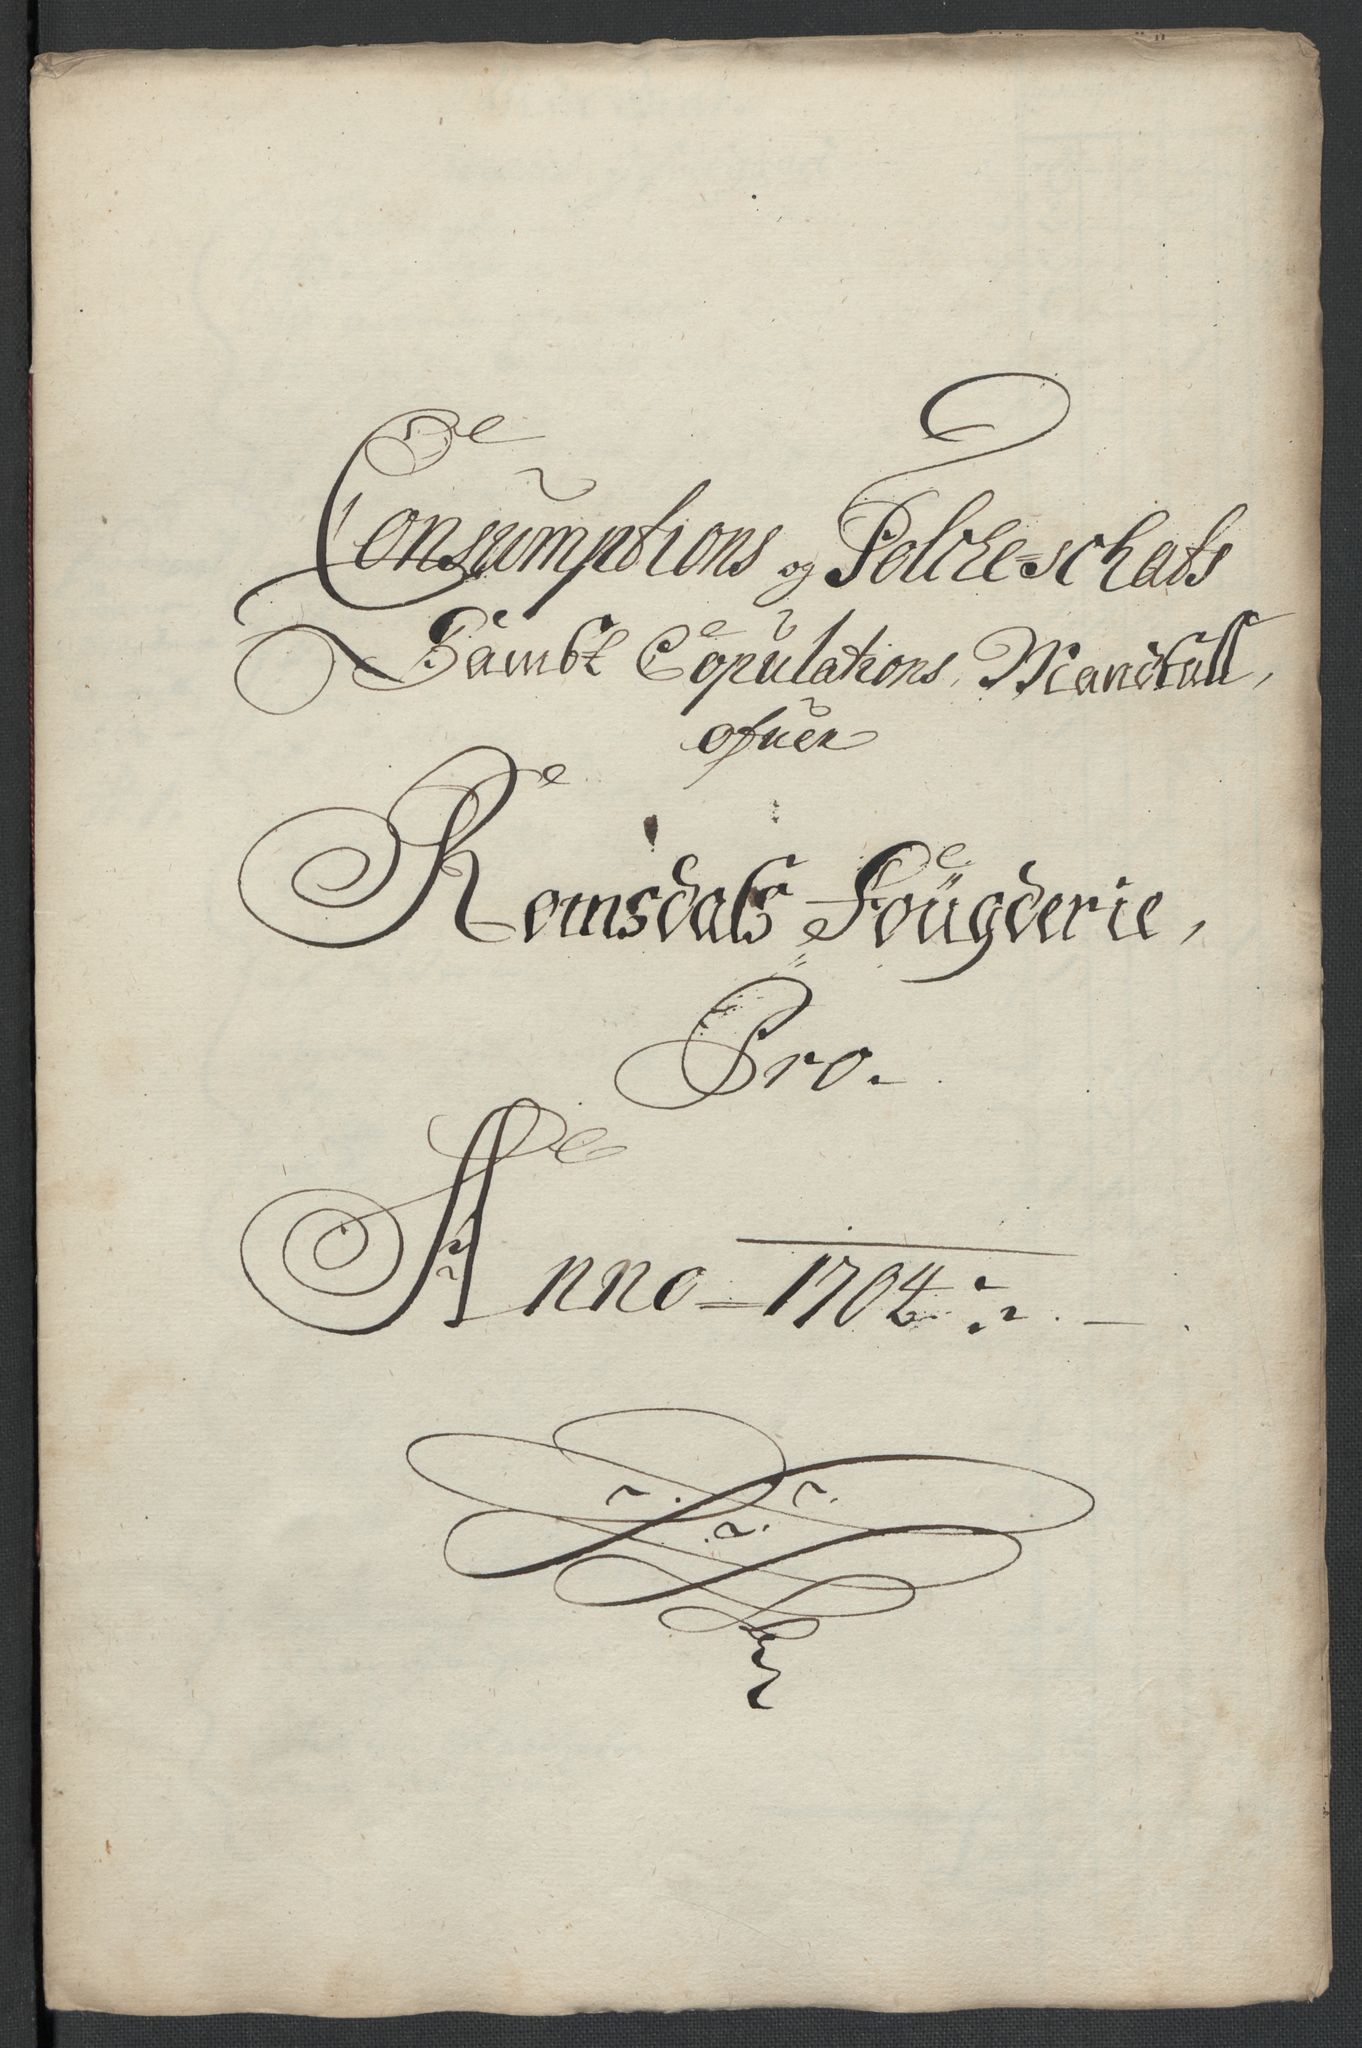 Consumptions og Folche=schats
Sambt Copulations, Mandtall,
ofuer
Romsdals Fougderie,
Pro.
Anno=1704